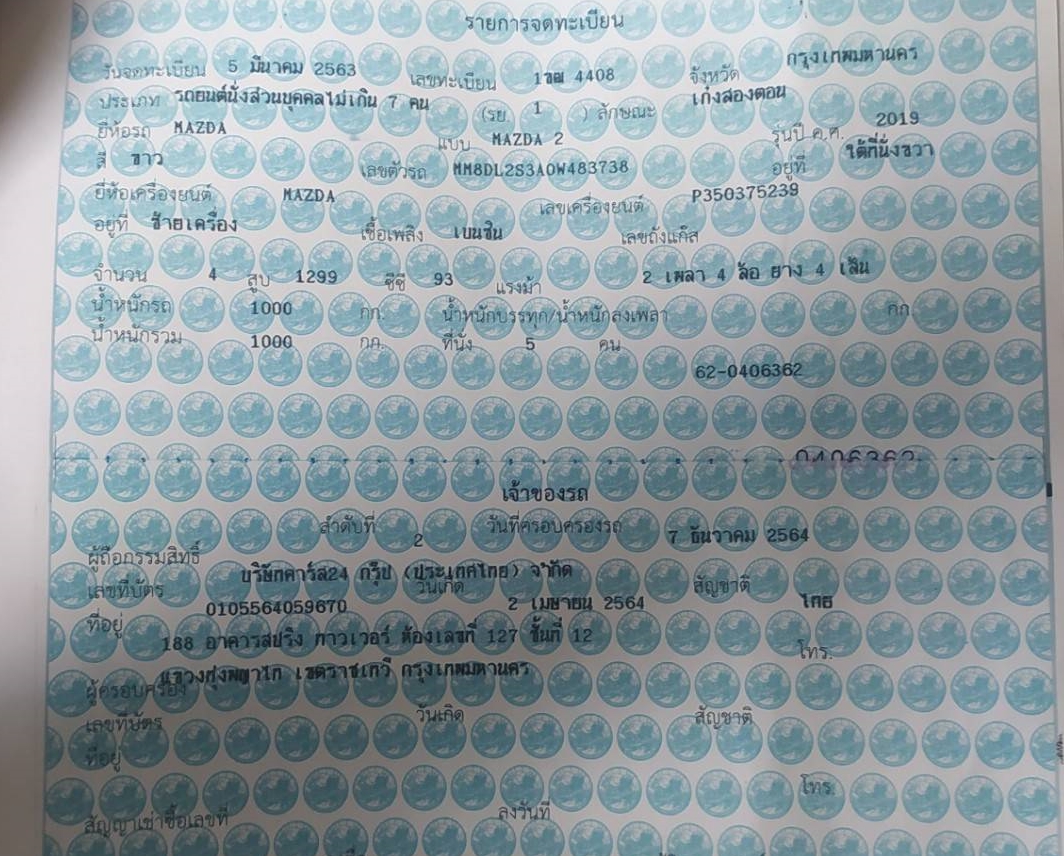 รายการจดทะเบียน
วันจดทะเบียน 5 มีนาคม 2563 เลขทะเบียน 1ขฒ 4408 จังหวัด กรุงเทพมหานคร
ประเภท รถยนต์นั่งส่วนบุคคลไม่เกิน 7 คน (รย. 1 ) ลักษณะ เก๋งสองตอน
ยี่ห้อรถ MAZDA แบบ MAZDA 2 รุ่นปี ค.ศ. 2019
สี ขาว เลขตัวรถ MM8DL2S3A0W483738 อยู่ที่ ใต้ที่นั่งขวา
ยี่ห้อเครื่องยนต์ MAZDA เลขเครื่องยนต์ P350375239
อยู่ที่ ซ้ายเครื่อง เชื้อเพลิง เบนซิน เลขถังแก๊ส
จำนวน 4 สูบ 1299 ซีซี 93 แรงม้า 2 เพลา 4 ล้อ ยาง 4 เส้น
น้ำหนักรถ 1000 กก. น้ำหนักบรรทุก/น้ำหนักลงเพลา กก.
น้ำหนักรวม 1000 กก. ที่นั่ง 5 คน
62-0406362
0406362
เจ้าของรถ
ลำดับที่ 2 วันที่ครอบครองรถ 7 ธันวาคม 2564
ผู้ถือกรรมสิทธิ์ บริษัทคาร์ส24 กรุ๊ป (ประเทศไทย) จำกัด
เลขที่บัตร 0105564059670 วันเกิด 2 เมษายน 2564 สัญชาติ ไทย
ที่อยู่ 188 อาคารสปริง ทาวเวอร์ ห้องเลขที่ 127 ชั้นที่ 12 โทร.
แขวงทุ่งพญาไท เขตราชเทวี กรุงเทพมหานคร
ผู้ครอบครอง
เลขที่บัตร วันเกิด สัญชาติ
ที่อยู่
โทร.
สัญญาเช่าซื้อเลขที่ ลงวันที่